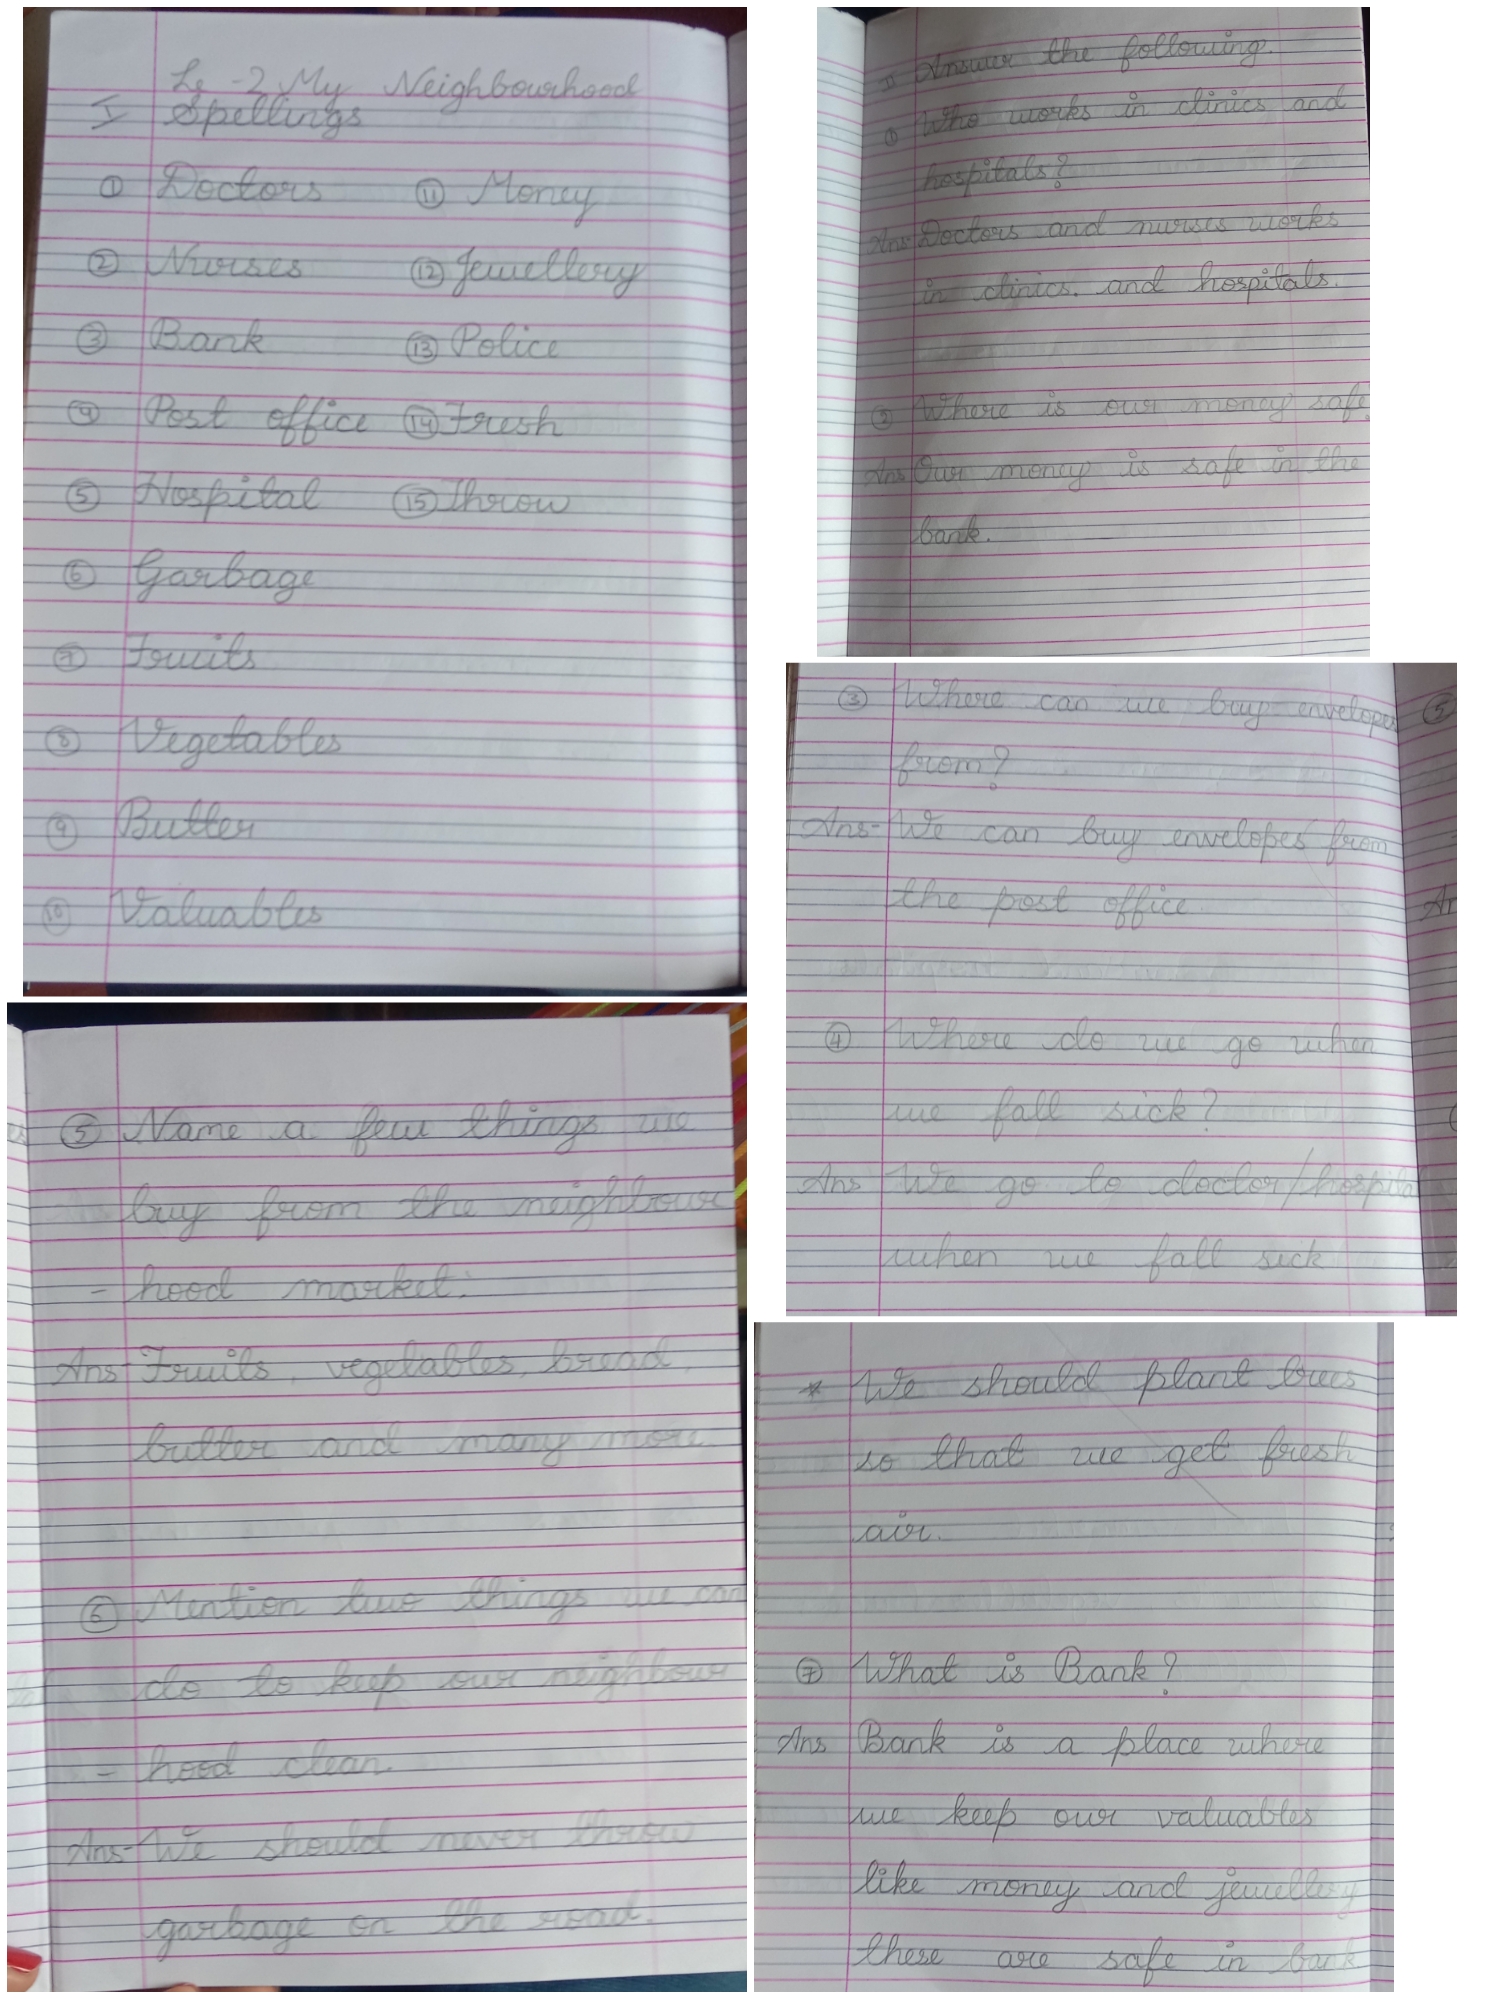 Ls -2 My Neighbourhood
I Spellings
① Doctors ⑪ Money
② Nurses ⑫ Jewellery
③ Bank ⑬ Police
④ Post office ⑭ Fresh
⑤ Hospital ⑮ Throw
⑥ Garbage
⑦ Fruits
⑧ Vegetables
⑨ Butter
⑩ Valuables
II Answer the following.
① Who works in clinics and
hospitals?
Ans Doctors and nurses works
in clinics. and hospitals.
② Where is our money safe
Ans Our money is safe in the
bank.
③ Where can we buy envelopes
from?
Ans- We can buy envelopes from
the post office
④ Where do we go when
we fall sick?
Ans We go to doctor/hospital
when we fall sick
⑤ Name a few things we
buy from the neighbour
- hood market.
Ans- Fruits, vegetables, bread,
butter and many more
⑥ Mention two things we can
do to keep our neighbour
- hood clean.
Ans- We should never throw
garbage on the road.
* We should plant trees
so that we get fresh
air.
⑦ What is Bank?
Ans Bank is a place where
we keep our valuables
like money and jewellery
these are safe in bank